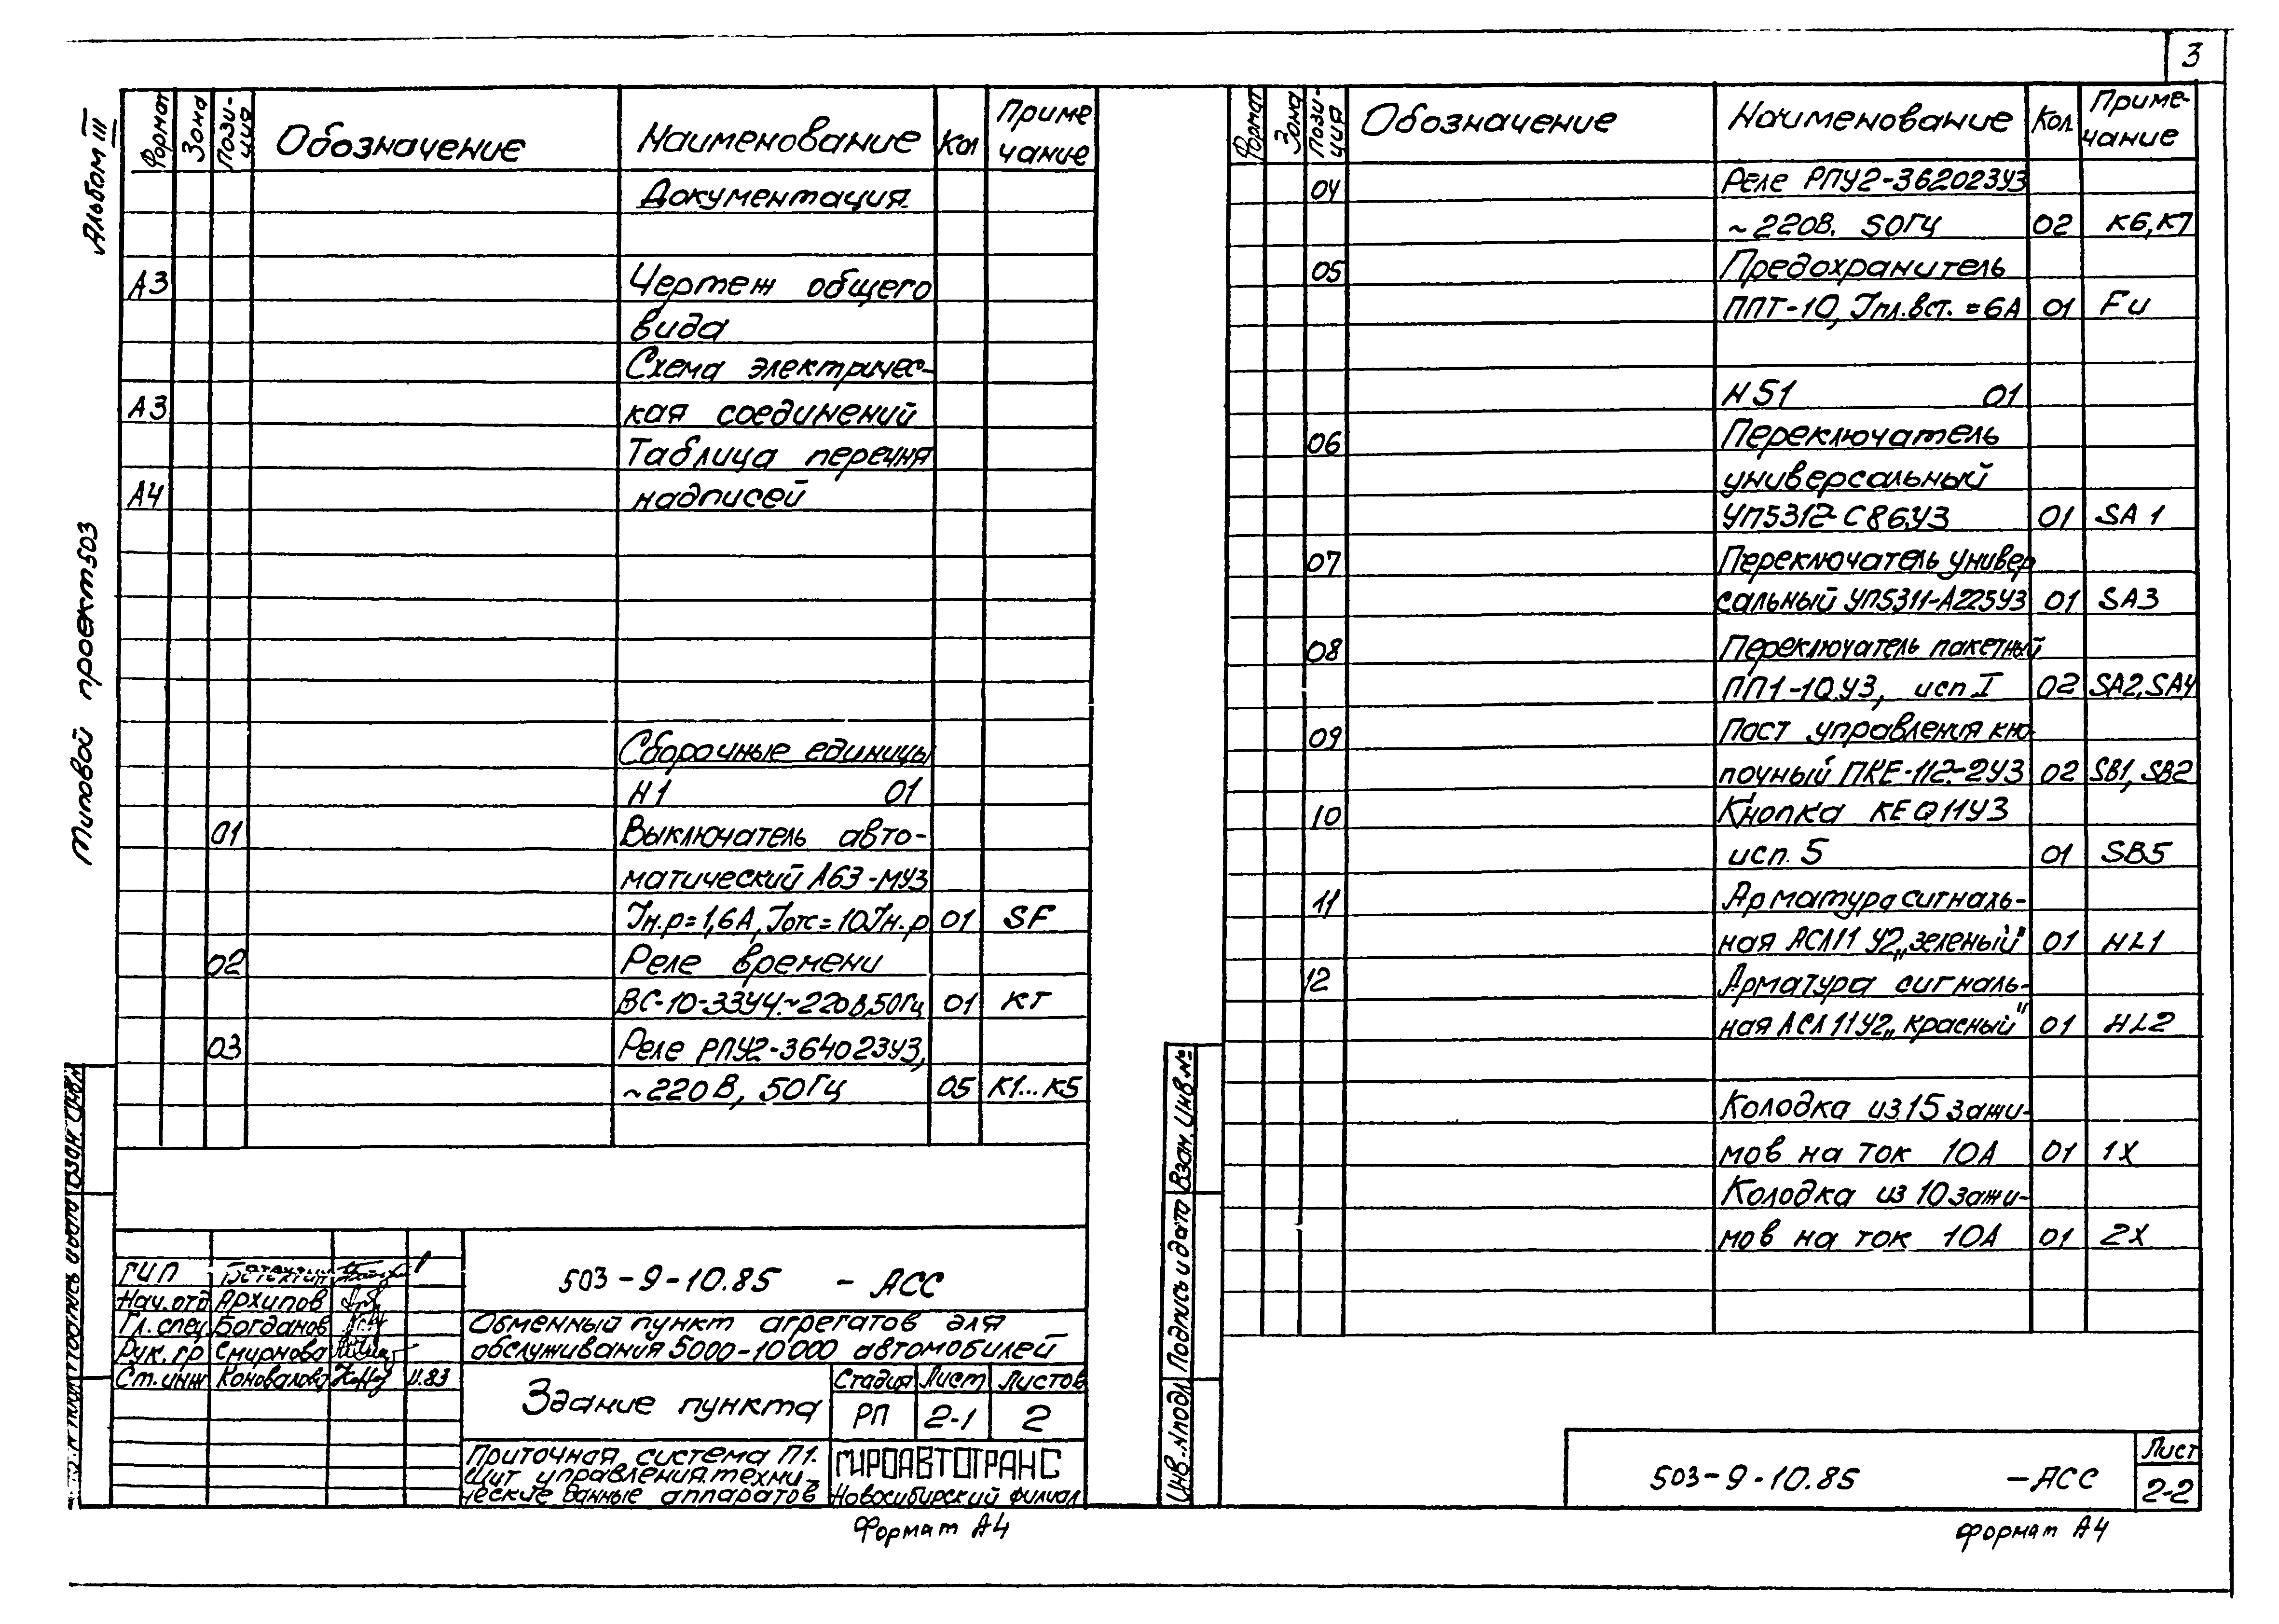 3
Альбом III
Типовой проект 503
Формат Зона Пози-ция Обозначение Наименование Кол Приме чание
Документация
А3 Чертеж общего
вида
Схема электричес-
А3 кая соединений
Таблица перечня
А4 надписей
Сборочные единицы
Н1 01
01 Выключатель авто-
матический А63-МУ3
Iн.р=1,6А, Iотс=10Iн.р 01 SF
02 Реле времени
ВС-10-33У4.~220В,50Гц 01 КТ
03 Реле РПУ2-364023У3,
~220В, 50Гц 05 К1...К5
ГИП
Нач.отд Архипов
Гл. спец Богданов
Рук. гр Смирнова
Ст. инж Коновалова 11.83
503-9-10.85 - АСС
Обменный пункт агрегатов для
обслуживания 5000-10000 автомобилей
Здание пункта
Стадия Лист Листов
РП 2-1 2
Приточная система П1.
Щит управления.техни-
ческие данные аппаратов
ГИПРОАВТОТРАНС
Новосибирский филиал
Формат А4
Формат Зона Пози-ция Обозначение Наименование Кол. Приме-чание
04 Реле РПУ2-362023У3
~220В. 50Гц 02 К6,К7
05 Предохранитель
ППТ-10, Iпл.вст.=6А 01 Fu
Н51 01
06 Переключатель
универсальный
УП5312-С86У3 01 SA1
07 Переключатель универ
сальный УП5311-А225У3 01 SA3
08 Переключатель пакетный
ПП1-10У3, исп I 02 SA2,SA4
09 Пост управления кно-
почный ПКЕ-112-2У3 02 SB1, SB2
10 Кнопка КЕ011У3
исп. 5 01 SB5
11 Арматура сигналь-
ная АСЛ11 У2„зеленый" 01 HL1
12 Арматура сигналь-
ная АСЛ11У2„красный" 01 HL2
Колодка из 15 зажи-
мов на ток 10А 01 1Х
Колодка из 10 зажи-
мов на ток 10А 01 2Х
Взам. Инв.№
Подпись и дата
Инв.№подл
503-9-10.85 -АСС
Лист
2-2
Формат А4